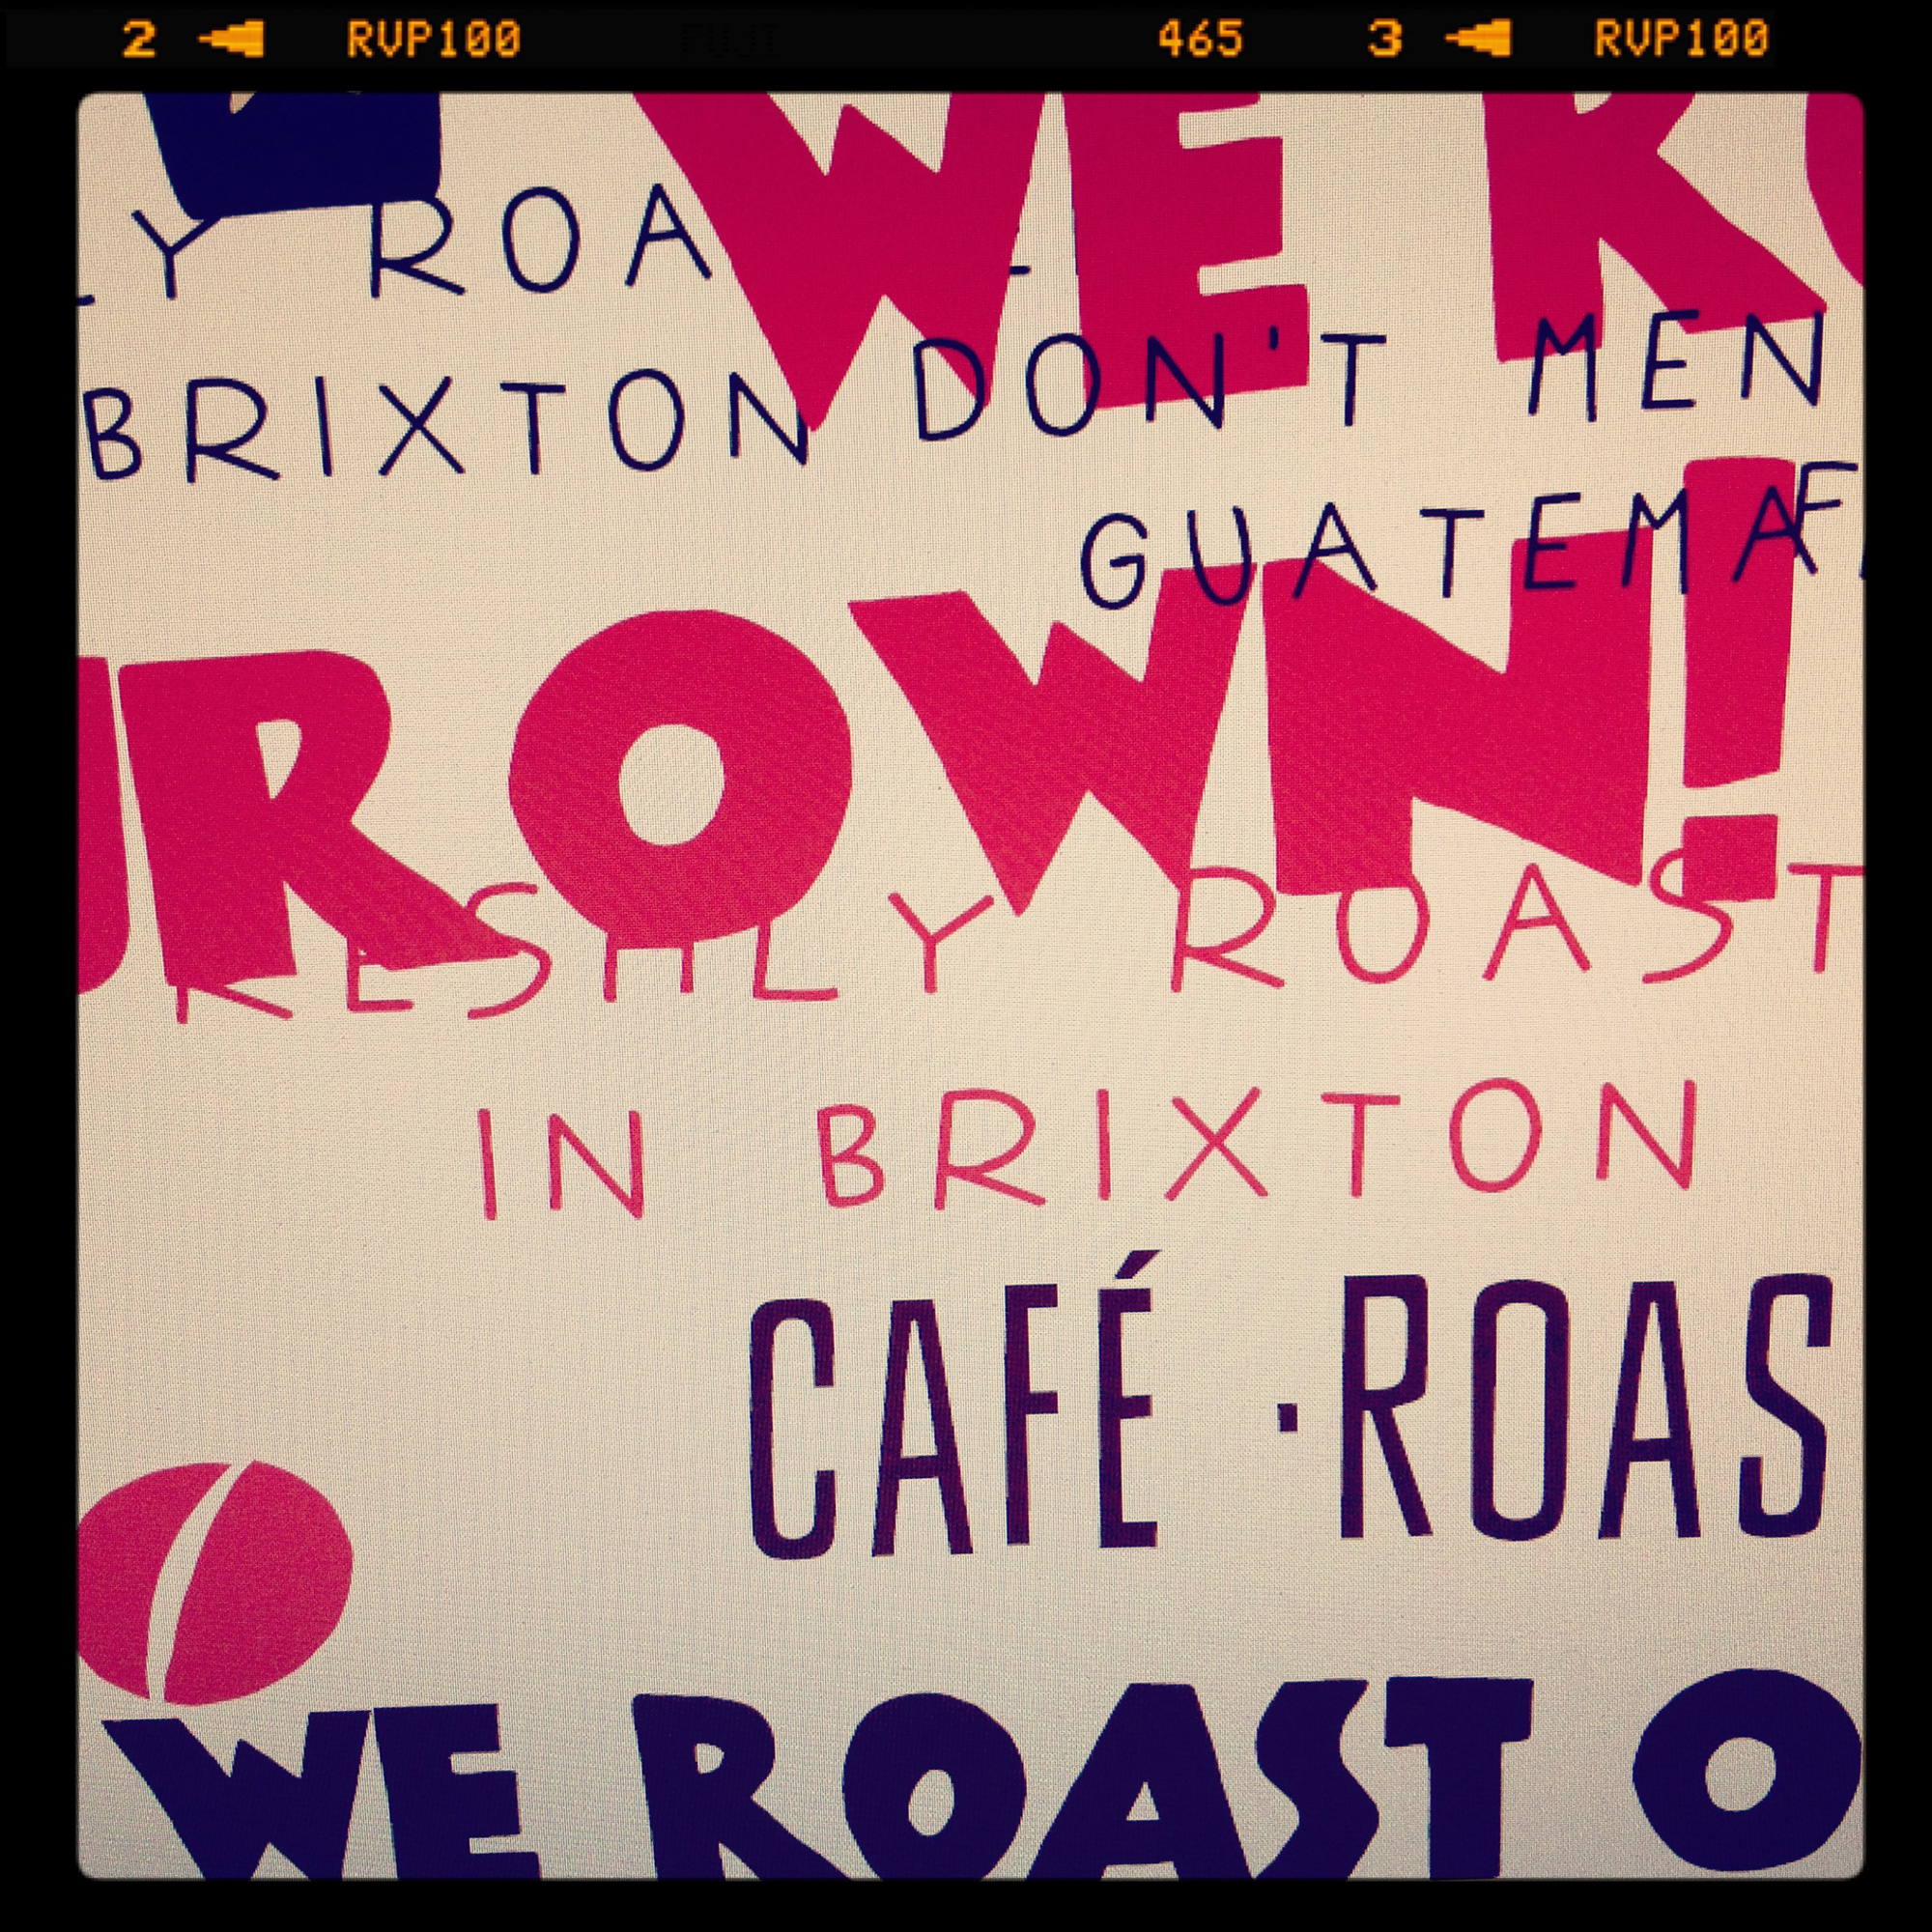 2 RVP100 465 3 RVP100
WE RO
LY ROA
BRIXTON DON'T MEN
GUATEMA F
UR OWN!
RESHLY ROAST
IN BRIXTON
CAFÉ ·ROAS
WE ROAST O